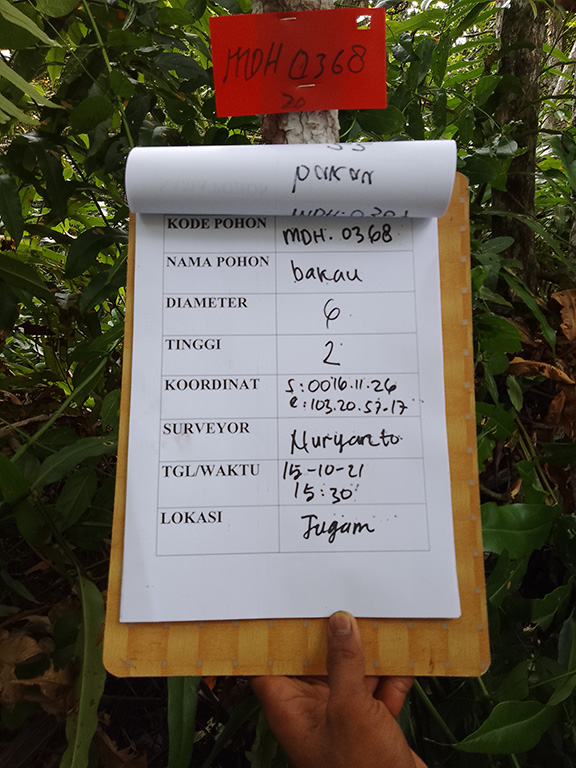 MDH 0368
20
pakan
KODE POHON MDH. 0368
NAMA POHON bakau
DIAMETER 6
TINGGI 2
KOORDINAT S:0016.11.26
e:103.20.57.17
SURVEYOR Nuryanto
TGL/WAKTU 15-10-21
15:30
LOKASI Jugam